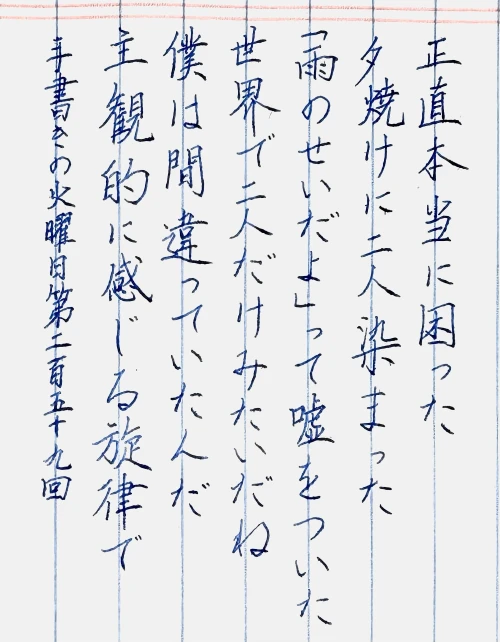 正直本当に困った
夕焼けに二人染まった
「雨のせいだよ」って嘘をついた
世界で二人だけみたいだね
僕は間違っていたんだ
主観的に感じる旋律で
手書きの火曜日第二百五十九回